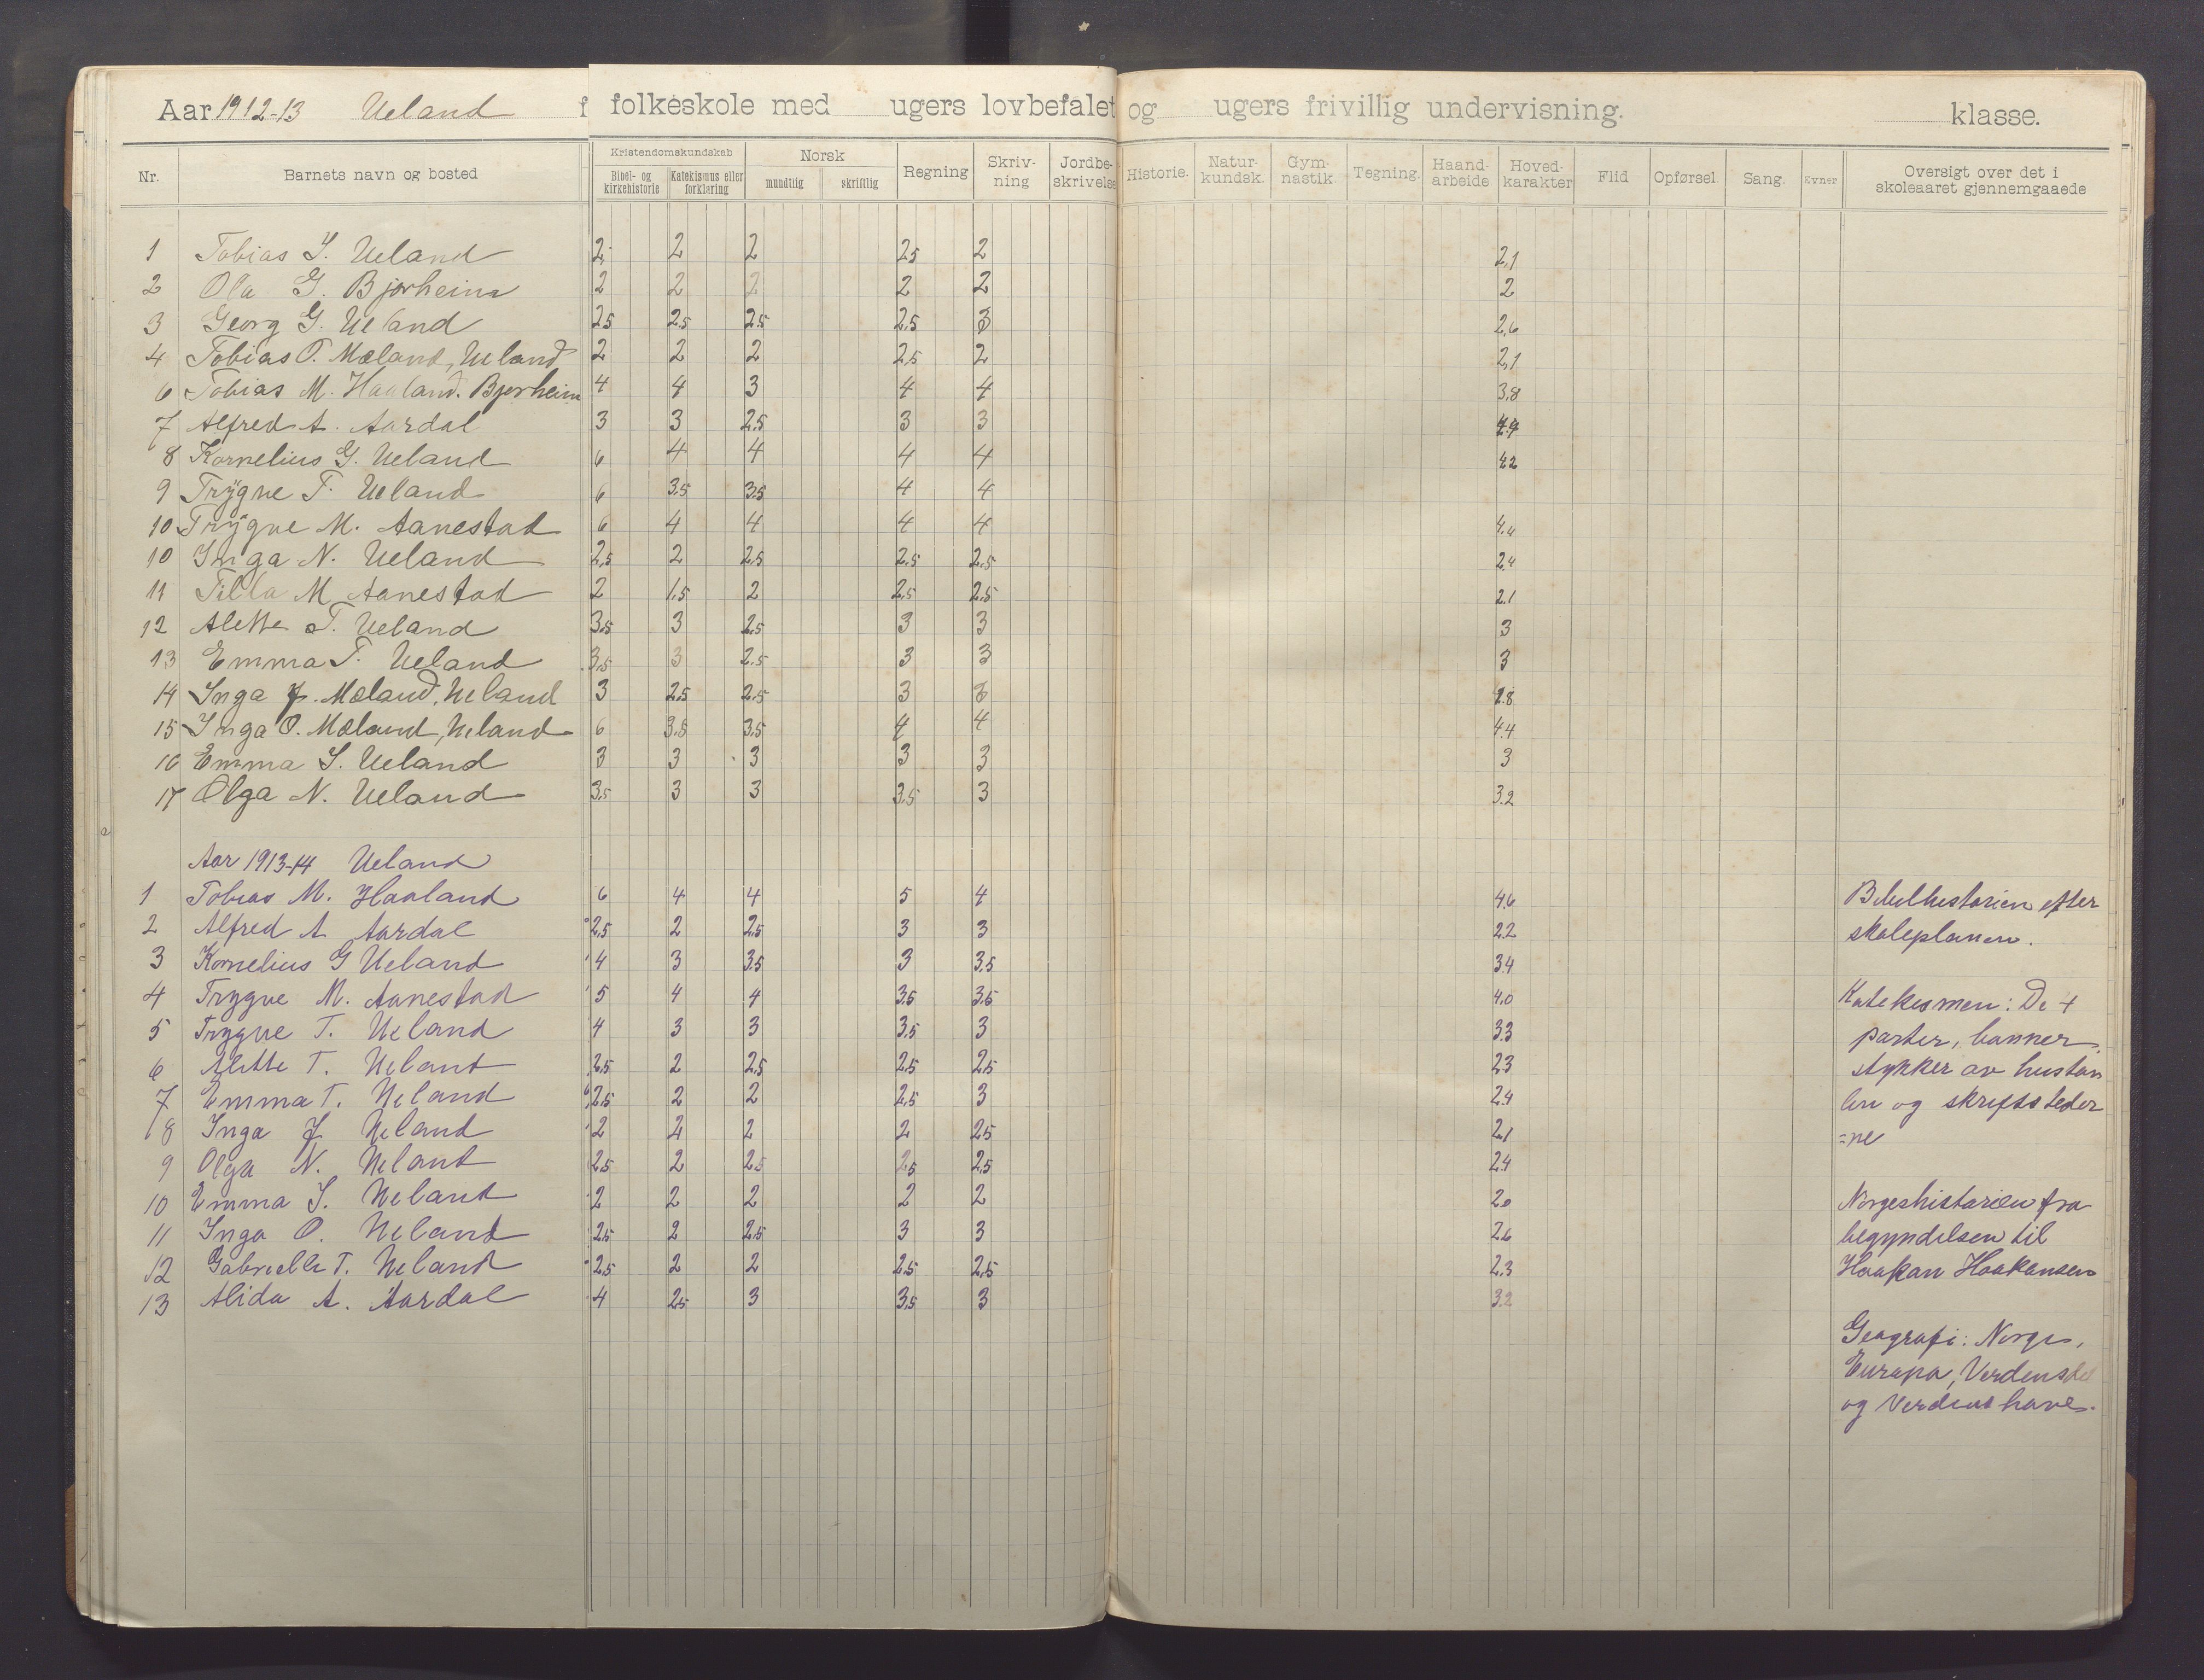 Aar 1912-13 Ueland f folkeskole med ugers lovbefalet og ugers frivillig undervisning. klasse.
Nr. Barnets navn og bosted Kristendomskundskab Bibel- og kirkehistorie Katekismus eller forklaring Norsk mundtlig skriftlig Regning Skriv-ning Jordbe-skrivelse Historie. Natur-kundsk. Gym-nastik. Tegning. Haand-arbeide Hoved-karakter Flid Opførsel. Sang. Evner Oversigt over det i skoleaaret gjennemgaaede
1 Tobias S. Ueland 2 2 2 2,5 2 2,1
2 Ola G. Bjørheim 2 2 2 2 2 2
3 Georg G. Ueland 2,5 2,5 2,5 2,5 3 2,6
4 Tobias O. Mæland, Ueland 2 2 2 2,5 2 2,1
6 Tobias M. Haaland. Bjørheim 4 4 3 4 4 3,8
7 Alfred A. Aardal 3 3 2,5 3 3
8 Kornelius G. Ueland 6 4 4 4 4 4,2
9 Trygve T. Ueland 6 3,5 3,5 4 4
10 Trygve M. Aanestad 6 4 4 4 4 4,4
10 Inga N. Ueland 2,5 2 2,5 2,5 2,5 2,4
11 Tilla M. Aanestad 2 1,5 2 2,5 2,5 2,1
12 Alette T. Ueland 3,5 3 2,5 3 3 3
13 Emma T. Ueland 3,5 3 2,5 3 3 3
14 Inga J. Mæland, Ueland 3 2,5 2,5 3 3 2,8
15 Inga O. Mæland, Ueland 6 3,5 3,5 4 4 4,4
16 Emma S. Ueland 3 3 3 3 3 3
17 Olga N. Ueland 3,5 3 3 3,5 3 3,2
Aar 1913-14 Ueland
1 Tobias M. Haaland 6 4 4 5 4 4,6 Bibelhistorien efter
2 Alfred A Aardal 2,5 2 2,5 3 3 2,2 skoleplanen.
3 Kornelius G Ueland 4 3 3,5 3 3,5 3,4
4 Trygve M. Aanestad 5 4 4 3,5 3,5 4,0 Katekesmen: De 4
5 Trygve T. Ueland 4 3 3 3,5 3 3,3 parter, bønner,
6 Alette T. Ueland 2,5 2 2,5 2,5 2,5 2,3 stykker av hustav
7 Emma T. Ueland 2,5 2 2 2,5 3 2,4 len og skriftsteder
8 Inga J Ueland 2 2 2 2 2,5 2,1 =ne
9 Olga N. Ueland 2,5 2 2,5 2,5 2,5 2,4
10 Emma S. Ueland 2 2 2 2 2 2,0 Norgeshistorien fra
11 Inga O. Ueland 2,5 2 2,5 3 3 2,6 begyndelsen til
12 Gabrielle T. Ueland 2,5 2 2 2,5 2,5 2,3 Haakon Haakonsen
13 Alida A. Aardal 4 2,5 3 3,5 3 3,2
Geografi: Norge,
Europa, Verdensdel
og Verdenshave.